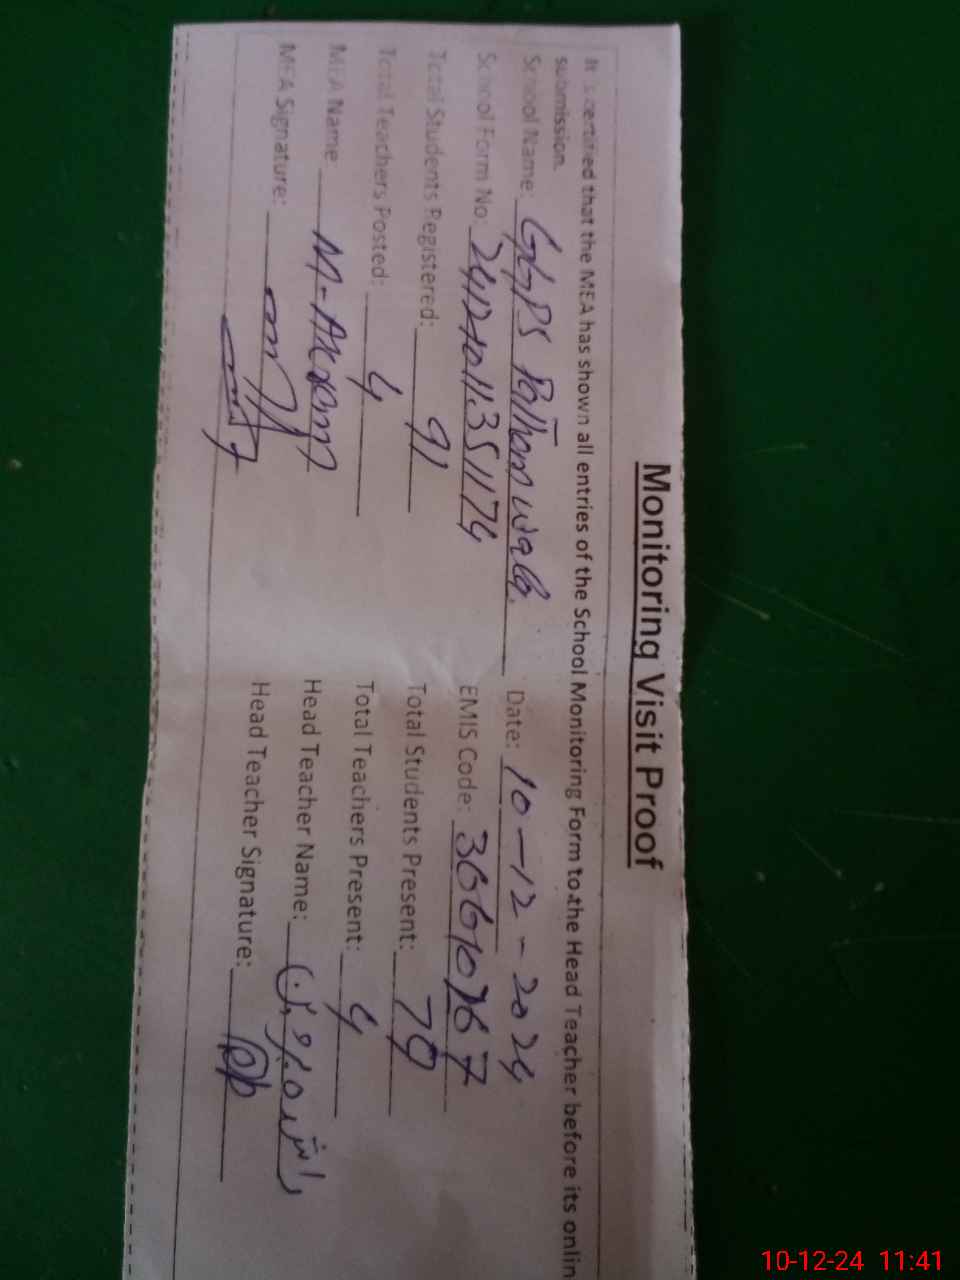 Monitoring Visit Proof
It is certified that the MEA has shown all entries of the School Monitoring Form to the Head Teacher before its onlin
submission.
School Name: GGPS Pathan wala. Date: 10-12-2024
School Form No: EMIS Code:
Total Students Registered: 91 Total Students Present: 79
Total Teachers Posted: 4 Total Teachers Present: 4
MEA Name: M-Akram Head Teacher Name: راشدہ پروین
MEA Signature: Head Teacher Signature:
10-12-24 11:41